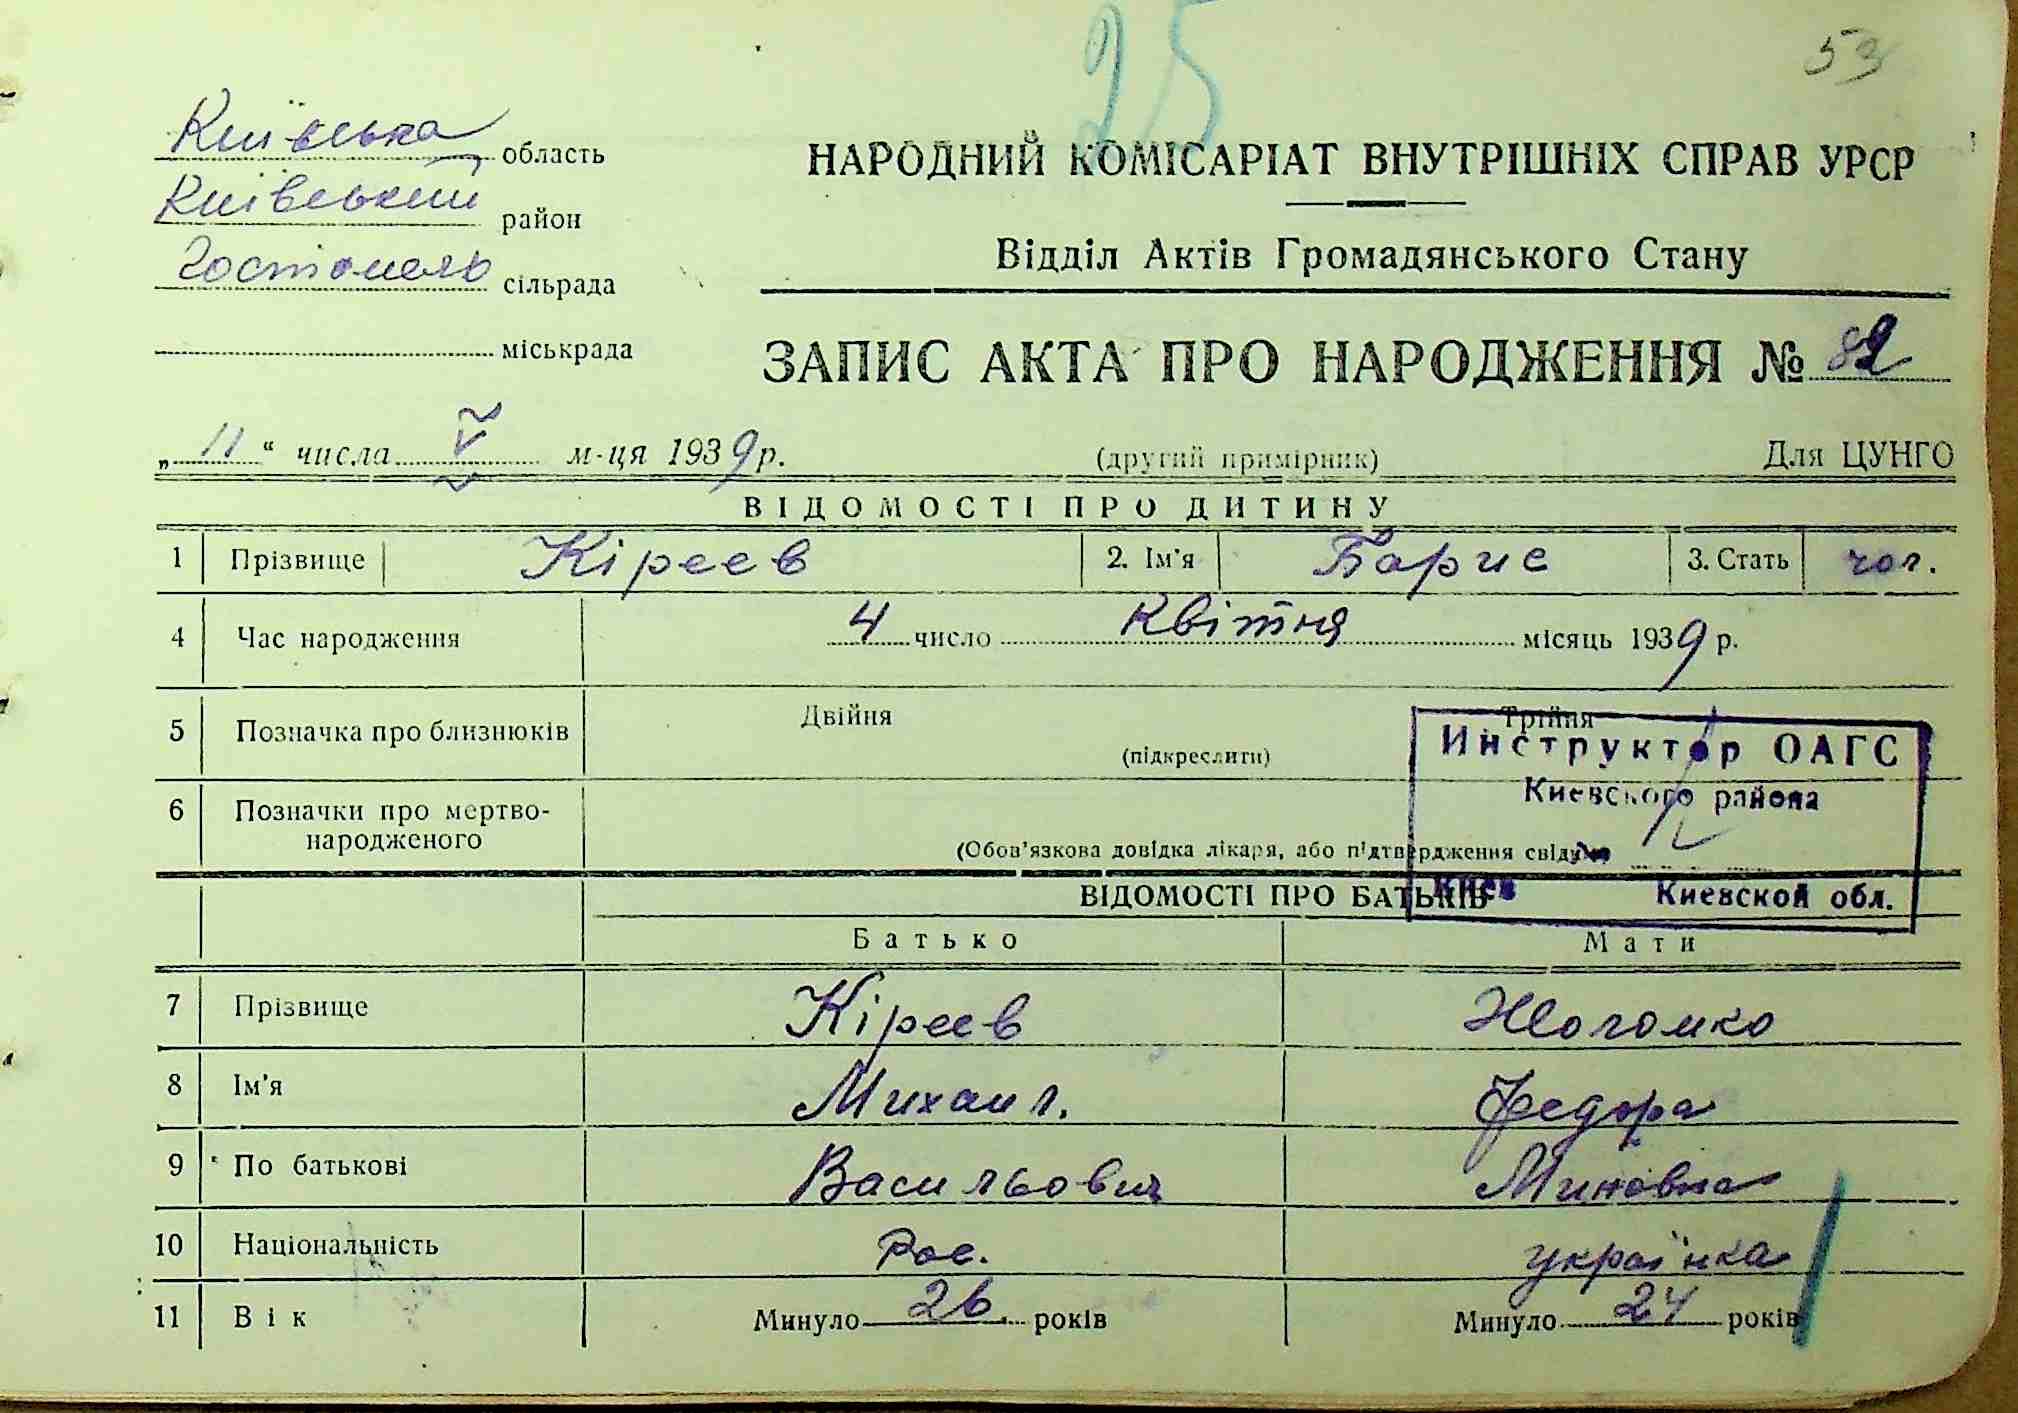 25
53
Київська область
Київський район
Гостомель сільрада
міськрада
НАРОДНИЙ КОМІСАРІАТ ВНУТРІШНІХ СПРАВ УРСР
Відділ Актів Громадянського Стану
ЗАПИС АКТА ПРО НАРОДЖЕННЯ № 82
„11“ числа V м-ця 1939 р. (другий примірник) Для ЦУНГО
ВІДОМОСТІ ПРО ДИТИНУ
1 Прізвище Кіреев 2. Ім'я Барис 3. Стать чол.
4 Час народження 4 число Квітня місяць 1939 р.
5 Позначка про близнюків Двійня Трійня
(підкреслити)
6 Позначки про мертво-
народженого
(Обов'язкова довідка лікаря, або підтвердження свідків
Инструктор ОАГС
Киевского района
Киев Киевской обл.
ВІДОМОСТІ ПРО БАТЬКІВ
Батько Мати
7 Прізвище Кіреев
8 Ім'я Михаил. Федора
9 По батькові Васильович Миновна
10 Національність Рос. українка
11 Вік Минуло 26 років Минуло 24 років